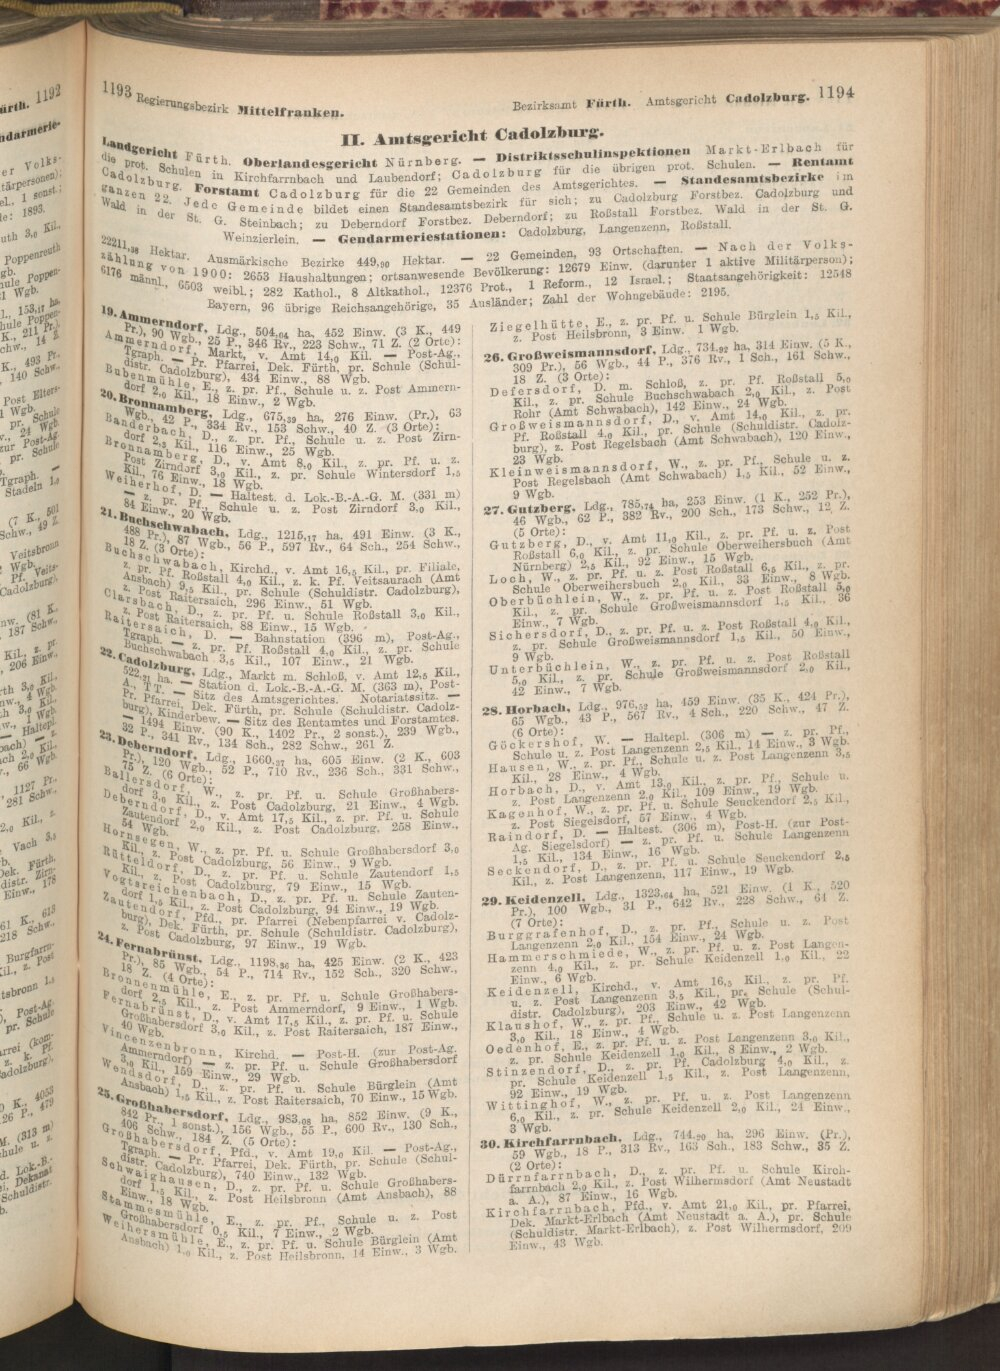 1193 Regierungsbezirk Mittelfranken.
Bezirksamt Fürth. Amtsgericht Cadolzburg. 1194
II. Amtsgericht Cadolzburg.
Landgericht Fürth. Oberlandesgericht Nürnberg. — Distriktsschulinspektionen Markt-Erlbach für
die prot. Schulen in Kirchfarrnbach und Laubendorf; Cadolzburg für die übrigen prot. Schulen. — Rentamt
Cadolzburg. Forstamt Cadolzburg für die 22 Gemeinden des Amtsgerichtes. — Standesamtsbezirke im
ganzen 22. Jede Gemeinde bildet einen Standesamtsbezirk für sich; zu Cadolzburg Forstbez. Cadolzburg und
Wald in der St. G. Steinbach; zu Deberndorf Forstbez. Deberndorf; zu Roßstall Forstbez. Wald in der St. G.
Weinzierlein. — Gendarmeriestationen: Cadolzburg, Langenzenn, Roßstall.
22211,38 Hektar. Ausmärkische Bezirke 449,90 Hektar. — 22 Gemeinden, 93 Ortschaften. — Nach der Volks-
zählung von 1900: 2653 Haushaltungen; ortsanwesende Bevölkerung: 12679 Einw. (darunter 1 aktive Militärperson);
6176 männl., 6503 weibl.; 282 Kathol., 8 Altkathol., 12376 Prot., 1 Reform., 12 Israel.; Staatsangehörigkeit: 12548
Bayern, 96 übrige Reichsangehörige, 35 Ausländer; Zahl der Wohngebäude: 2195.
19. Ammerndorf, Ldg., 504,04 ha, 452 Einw. (3 K., 449
Pr.), 90 Wgb., 25 P., 346 Rv., 223 Schw., 71 Z. (2 Orte):
Ammerndorf, Markt, v. Amt 14,0 Kil. — Post-Ag.,
Tgraph. — Pr. Pfarrei, Dek. Fürth, pr. Schule (Schul-
distr. Cadolzburg), 434 Einw., 88 Wgb.
Bubenmühle, E., z. pr. Pf., Schule u. z. Post Ammern-
dorf 2,0 Kil., 18 Einw., 2 Wgb.
20. Bronnamberg, Ldg., 675,39 ha, 276 Einw. (Pr.), 63
Wgb., 42 P., 334 Rv., 153 Schw., 40 Z. (3 Orte):
Banderbach, D., z. pr. Pf., Schule u. z. Post Zirn-
dorf 2,5 Kil., 116 Einw., 25 Wgb.
Bronnamberg, D., v. Amt 8,0 Kil., z. pr. Pf. u. z.
Post Zirndorf 3,0 Kil., z. pr. Schule Wintersdorf 1,5
Kil., 76 Einw., 18 Wgb.
Weiherhof, D. — Haltest. d. Lok.-B.-A.-G. M. (331 m)
— z. pr. Pf., Schule u. z. Post Zirndorf 3,0 Kil.,
84 Einw., 20 Wgb.
21. Buchschwabach, Ldg., 1215,17 ha, 491 Einw. (3 K.,
488 Pr.), 87 Wgb., 56 P., 597 Rv., 64 Sch., 254 Schw.,
18 Z. (3 Orte):
Buchschwabach, Kirchd., v. Amt 16,5 Kil., pr. Filiale,
z. pr. Pf. Roßstall 4,0 Kil., z. k. Pf. Veitsaurach (Amt
Ansbach) 9,5 Kil., pr. Schule (Schuldistr. Cadolzburg),
z. Post Raitersaich, 296 Einw., 51 Wgb.
Clarsbach, D., z. pr. Pf. u. Schule Roßstall 3,0 Kil.,
z. Post Raitersaich, 88 Einw., 15 Wgb.
Raitersaich, D. — Bahnstation (396 m), Post-Ag.,
Tgraph. — z. pr. Pf. Roßstall 4,0 Kil., z. pr. Schule
Buchschwabach 3,5 Kil., 107 Einw., 21 Wgb.
22. Cadolzburg, Ldg., Markt m. Schloß, v. Amt 12,5 Kil.,
522,21 ha. — Station d. Lok.-B.-A.-G. M. (363 m), Post-
A., TT. — Sitz des Amtsgerichtes. Notariatssitz. —
Pr. Pfarrei, Dek. Fürth, pr. Schule (Schuldistr. Cadolz-
burg), Kinderbew. — Sitz des Rentamtes und Forstamtes.
— 1494 Einw. (90 K., 1402 Pr., 2 sonst.), 239 Wgb.,
32 P., 341 Rv., 134 Sch., 282 Schw., 261 Z.
23. Deberndorf, Ldg., 1660,37 ha, 605 Einw. (2 K., 603
Pr.), 120 Wgb., 52 P., 710 Rv., 236 Sch., 331 Schw.,
75 Z. (6 Orte):
Ballersdorf, W., z. pr. Pf. u. Schule Großhabers-
dorf 3,0 Kil., z. Post Cadolzburg, 21 Einw., 4 Wgb.
Deberndorf, D., v. Amt 17,5 Kil., z. pr. Pf. u. Schule
Zautendorf 2,0 Kil., z. Post Cadolzburg, 258 Einw.,
54 Wgb.
Hornsegen, W., z. pr. Pf. u. Schule Großhabersdorf 3,0
Kil., z. Post Cadolzburg, 56 Einw., 9 Wgb.
Rütteldorf, D., z. pr. Pf. u. Schule Zautendorf 1,5
Kil., z. Post Cadolzburg, 79 Einw., 15 Wgb.
Vogtsreichenbach, D., z. pr. Pf. u. Schule Zauten-
dorf 1,5 Kil., z. Post Cadolzburg, 94 Einw., 19 Wgb.
Zautendorf, Pfd., pr. Pfarrei (Nebenpfarrei v. Cadolz-
burg), Dek. Fürth, pr. Schule (Schuldistr. Cadolzburg),
z. Post Cadolzburg, 97 Einw., 19 Wgb.
24. Fernabrünst, Ldg., 1198,36 ha, 425 Einw. (2 K., 423
Pr.), 85 Wgb., 54 P., 714 Rv., 152 Sch., 320 Schw.,
18 Z. (4 Orte):
Bronnenmühle, E., z. pr. Pf. u. Schule Großhabers-
dorf 2,5 Kil., z. Post Ammerndorf, 9 Einw., 1 Wgb.
Fernabrünst, D., v. Amt 17,5 Kil., z. pr. Pf. u. Schule
Großhabersdorf 3,0 Kil., z. Post Raitersaich, 187 Einw.,
40 Wgb.
Vincenzenbronn, Kirchd. — Post-H. (zur Post-Ag.
Ammerndorf) — z. pr. Pf. u. Schule Großhabersdorf
3,0 Kil., 159 Einw., 29 Wgb.
Wendsdorf, D., z. pr. Pf. u. Schule Bürglein (Amt
Ansbach) 1,5 Kil., z. Post Raitersaich, 70 Einw., 15 Wgb.
25. Großhabersdorf, Ldg., 983,08 ha, 852 Einw. (9 K.,
842 Pr., 1 sonst.), 156 Wgb., 55 P., 600 Rv., 130 Sch.,
406 Schw., 184 Z. (5 Orte):
Großhabersdorf, Pfd., v. Amt 19,0 Kil. — Post-Ag.,
Tgraph. — Pr. Pfarrei, Dek. Fürth, pr. Schule (Schul-
distr. Cadolzburg), 740 Einw., 132 Wgb.
Schwaighausen, D., z. pr. Pf. u. Schule Großhabers-
dorf 1,5 Kil., z. Post Heilsbronn (Amt Ansbach), 88
Einw., 18 Wgb.
Stammesmühle, E., z. pr. Pf., Schule u. z. Post
Großhabersdorf 0,5 Kil., 7 Einw., 2 Wgb.
Weihersmühle, E., z. pr. Pf. u. Schule Bürglein (Amt
Ansbach) 1,0 Kil., z. Post Heilsbronn, 14 Einw., 3 Wgb.
Ziegelhütte, E., z. pr. Pf. u. Schule Bürglein 1,5 Kil.,
z. Post Heilsbronn, 3 Einw. 1 Wgb.
26. Großweismannsdorf, Ldg., 734,92 ha, 314 Einw. (5 K.,
309 Pr.), 56 Wgb., 44 P., 376 Rv., 1 Sch., 161 Schw.,
18 Z. (3 Orte):
Defersdorf, D. m. Schloß, z. pr. Pf. Roßstall 5,0
Kil., z. pr. Schule Buchschwabach 2,0 Kil., z. Post
Rohr (Amt Schwabach), 142 Einw., 24 Wgb.
Großweismannsdorf, D., v. Amt 14,0 Kil., z. pr.
Pf. Roßstall 4,0 Kil., pr. Schule (Schuldistr. Cadolz-
burg), z. Post Regelsbach (Amt Schwabach), 120 Einw.,
23 Wgb.
Kleinweismannsdorf, W., z. pr. Pf., Schule u. z.
Post Regelsbach (Amt Schwabach) 1,5 Kil., 52 Einw.,
9 Wgb.
27. Gutzberg, Ldg., 785,74 ha, 253 Einw. (1 K., 252 Pr.),
46 Wgb., 62 P., 382 Rv., 200 Sch., 173 Schw., 12 Z.
(5 Orte):
Gutzberg, D., v. Amt 11,0 Kil., z. pr. Pf. u. z. Post
Roßstall 6,0 Kil., z. pr. Schule Oberweihersbuch (Amt
Nürnberg) 2,5 Kil., 92 Einw., 15 Wgb.
Loch, W., z. pr. Pf. u. z. Post Roßstall 6,5 Kil., z. pr.
Schule Oberweihersbuch 2,0 Kil., 33 Einw., 8 Wgb.
Oberbüchlein, W., z. pr. Pf. u. z. Post Roßstall 5,0
Kil., z. pr. Schule Großweismannsdorf 1,5 Kil., 36
Einw., 7 Wgb.
Sichersdorf, D., z. pr. Pf. u. z. Post Roßstall 4,0 Kil.,
z. pr. Schule Großweismannsdorf 1,5 Kil., 50 Einw.,
9 Wgb.
Unterbüchlein, W., z. pr. Pf. u. z. Post Roßstall
5,0 Kil., z. pr. Schule Großweismannsdorf 2,0 Kil.,
42 Einw., 7 Wgb.
28. Horbach, Ldg., 976,52 ha, 459 Einw. (35 K., 424 Pr.),
65 Wgb., 43 P., 567 Rv., 4 Sch., 220 Schw., 47 Z.
(6 Orte):
Göckershof, W. — Haltepl. (306 m) — z. pr. Pf.,
Schule u. z. Post Langenzenn 2,5 Kil., 14 Einw., 3 Wgb.
Hausen, W., z. pr. Pf., Schule u. z. Post Langenzenn 3,5
Kil., 28 Einw., 4 Wgb.
Horbach, D., v. Amt 13,0 Kil., z. pr. Pf., Schule u.
z. Post Langenzenn 2,0 Kil., 109 Einw., 19 Wgb.
Kagenhof, W., z. pr. Pf. u. Schule Seuckendorf 2,5 Kil.,
z. Post Siegelsdorf, 57 Einw., 4 Wgb.
Raindorf, D. — Haltest. (306 m), Post-H. (zur Post-
Ag. Siegelsdorf) — z. pr. Pf. u. Schule Langenzenn
1,5 Kil., 134 Einw., 16 Wgb.
Seckendorf, D., z. pr. Pf. u. Schule Seuckendorf 2,5
Kil., z. Post Langenzenn, 117 Einw., 19 Wgb.
29. Keidenzell, Ldg., 1323,64 ha, 521 Einw. (1 K., 520
Pr.), 100 Wgb., 31 P., 642 Rv., 228 Schw., 61 Z.
(7 Orte):
Burggrafenhof, D., z. pr. Pf., Schule u. z. Post
Langenzenn 2,0 Kil., 154 Einw., 24 Wgb.
Hammerschmiede, W., z. pr. Pf. u. z. Post Langen-
zenn 4,0 Kil., z. pr. Schule Keidenzell 1,0 Kil., 22
Einw., 6 Wgb.
Keidenzell, Kirchd., v. Amt 16,5 Kil., z. pr. Pf.
u. z. Post Langenzenn 3,5 Kil., pr. Schule (Schul-
distr. Cadolzburg), 203 Einw., 42 Wgb.
Klaushof, W., z. pr. Pf., Schule u. z. Post Langenzenn
3,0 Kil., 18 Einw., 4 Wgb.
Oedenhof, E., z. pr. Pf. u. z. Post Langenzenn 3,0 Kil.,
z. pr. Schule Keidenzell 1,0 Kil., 8 Einw., 2 Wgb.
Stinzendorf, D., z. pr. Pf. Cadolzburg 4,0 Kil., z.
pr. Schule Keidenzell 1,5 Kil., z. Post Langenzenn,
92 Einw., 19 Wgb.
Wittinghof, W., z. pr. Pf. u. z. Post Langenzenn
6,0 Kil., z. pr. Schule Keidenzell 2,0 Kil., 24 Einw.,
3 Wgb.
30. Kirchfarrnbach, Ldg., 744,20 ha, 296 Einw. (Pr.),
59 Wgb., 18 P., 313 Rv., 163 Sch., 183 Schw., 35 Z.
(2 Orte):
Dürrnfarrnbach, D., z. pr. Pf. u. Schule Kirch-
farrnbach 2,0 Kil., z. Post Wilhermsdorf (Amt Neustadt
a. A.), 87 Einw., 16 Wgb.
Kirchfarrnbach, Pfd., v. Amt 21,0 Kil., pr. Pfarrei,
Dek. Markt-Erlbach (Amt Neustadt a. A.), pr. Schule
(Schuldistr. Markt-Erlbach), z. Post Wilhermsdorf, 209
Einw., 43 Wgb.